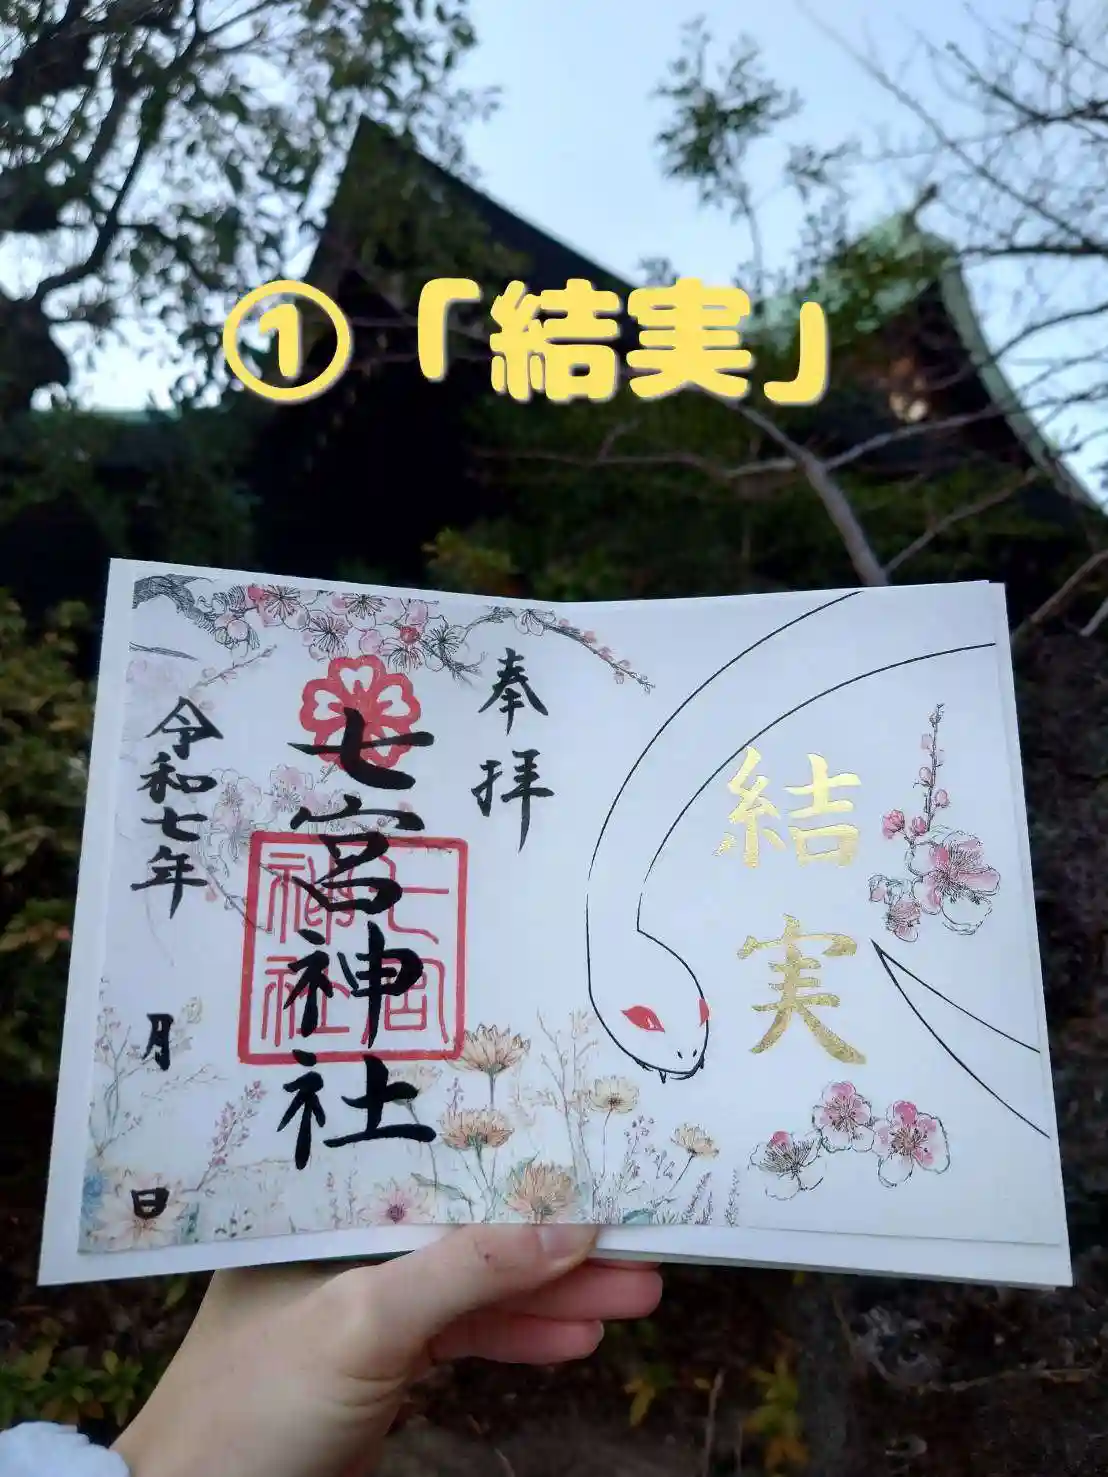 ①「結実」
奉拝
七宮神社
七宮
神社
令和七年
月
日
結実